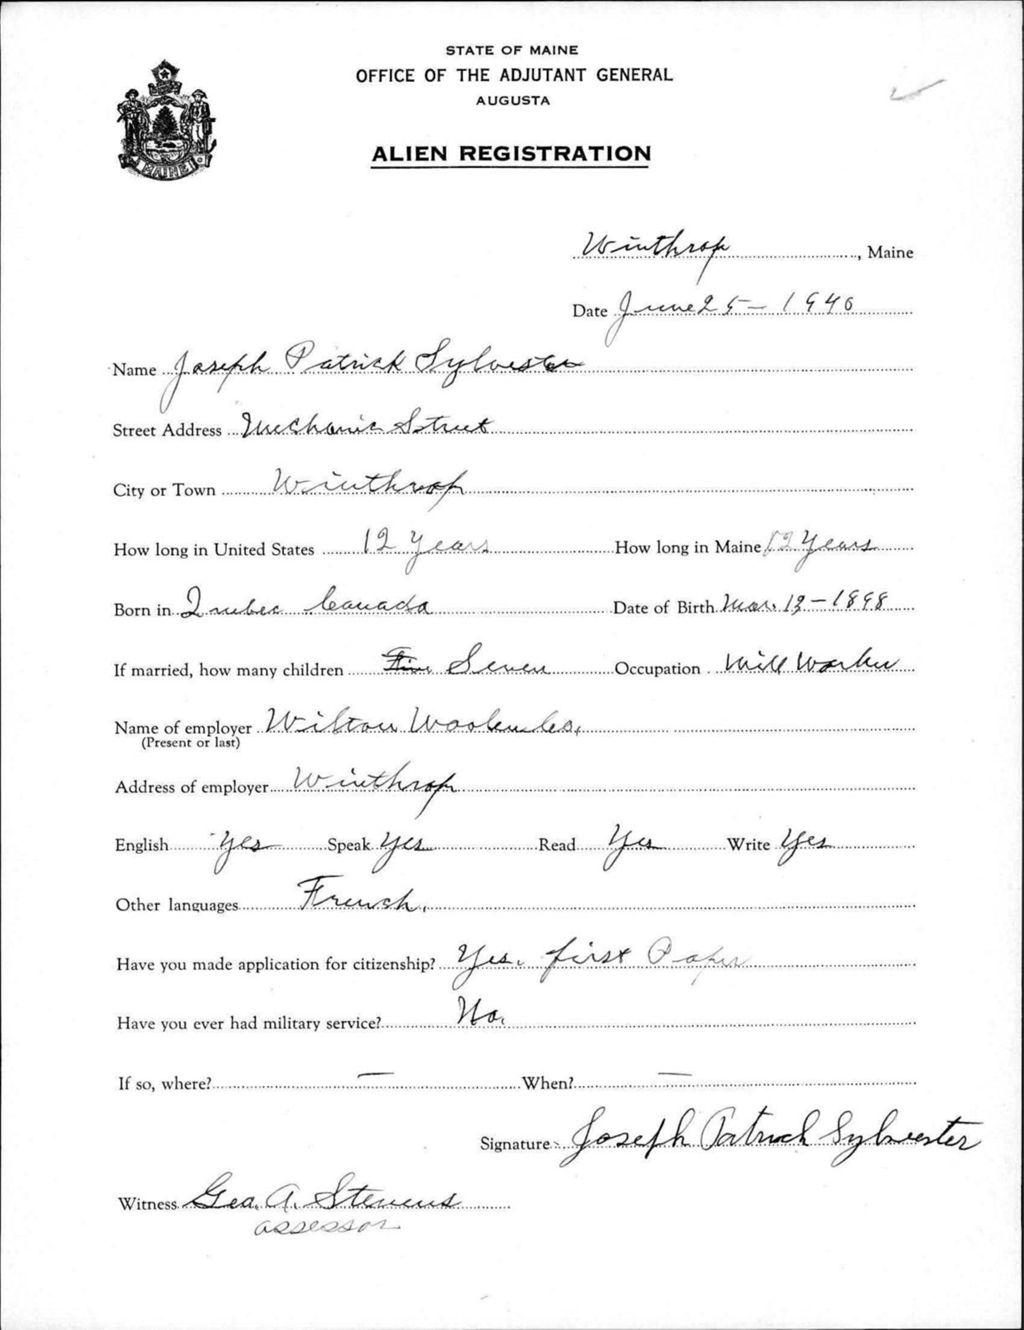 STATE OF MAINE
OFFICE OF THE ADJUTANT GENERAL
AUGUSTA
ALIEN REGISTRATION
MAINE
Winthrop, Maine
Date June 25 - 1940
Name Joseph Patrick Sylvester
Street Address Mechanic Street
City or Town Winthrop
How long in United States 12 Years How long in Maine 12 Years
Born in Quebec Canada Date of Birth Mar. 12 - 1898
If married, how many children Five Seven Occupation Mill Worker
Name of employer Wilton Woolen Co.
(Present or last)
Address of employer Winthrop
English Yes Speak Yes Read Yes Write Yes
Other languages French.
Have you made application for citizenship? Yes. first Paper
Have you ever had military service? No.
If so, where? — When? —
Signature Joseph Patrick Sylvester
Witness Geo. A. Stevens
assessor